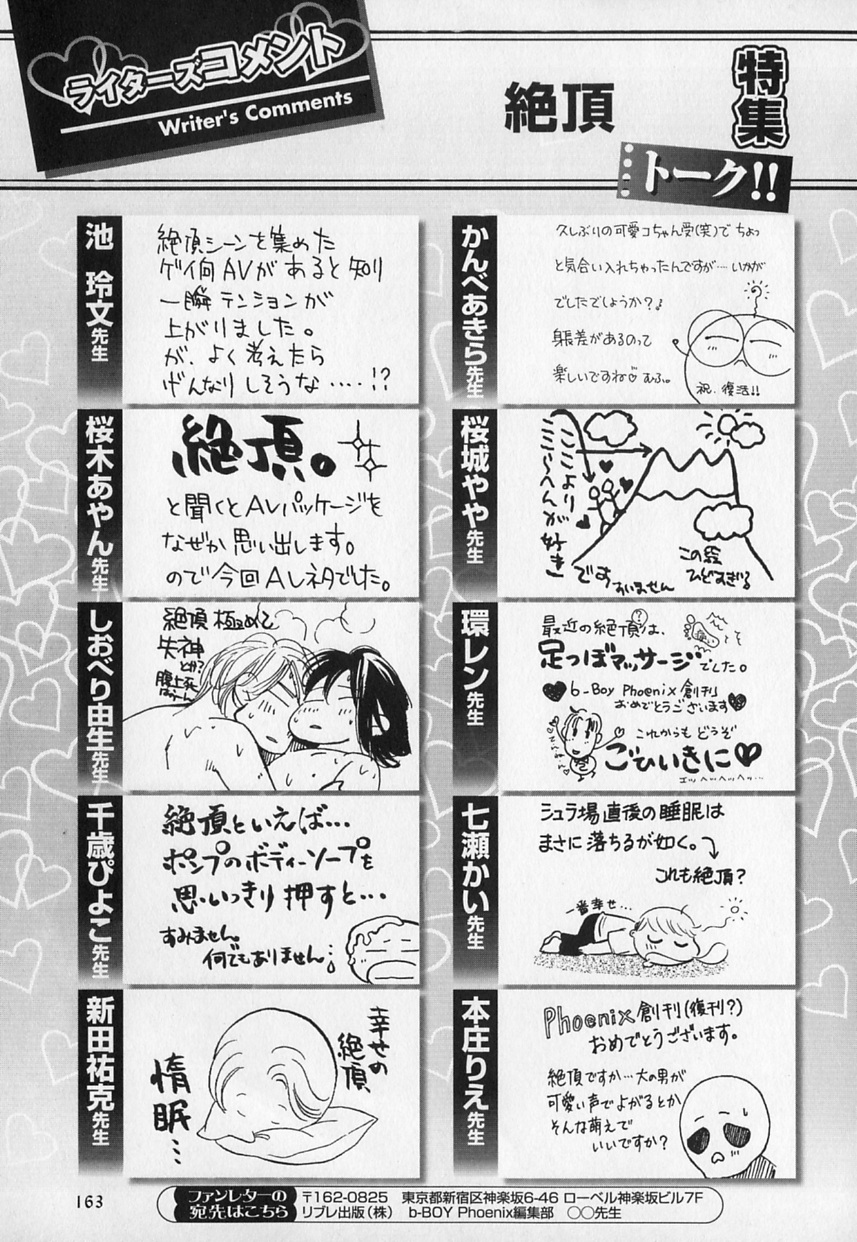 ライターズコメント
Writer's Comments
特集
絶頂
トーク!!
かんべあきら先生
久しぶりの可愛コちゃん受(笑)で ちょっ
と気合い入れちゃったんですが…いかが
でしたでしょうか?♪
身長差があるのって
楽しいですね♡ むふ。
祝、復活!!
池 玲文先生
絶頂シーンを集めた
ゲイ向AVがあると知り
一瞬テンションが
上がりました。
が、よく考えたら
げんなりしそうな……!?
桜城やや先生
ここより
ここらへんが
好き
です
すいません
この絵
ひどすぎる
桜木あやん先生
絶頂。
と聞くとAVパッケージを
なぜか思い出します。
ので今回AVネタでした。
環レン先生
最近の絶頂は、
?
足つぼマッサージでした。
♥b-Boy Phoenix創刊
おめでとうございます♥
これからも どうぞ
ごひいきに♥
エッヘッヘッヘッ…
しおべり由生先生
絶頂 極めて
失神
とか?
腹上死
七瀬かい先生
シュラ場直後の睡眠は
まさに落ちるが如く。
これも絶頂?
一番幸せ…
千歳ぴよこ先生
絶頂といえば…
ポンプのボディーソープを
思いっきり押すと…
すみません
何でもありません。
本庄りえ先生
Phoenix創刊(復刊?)
おめでとうございます。
絶頂ですか…大の男が
可愛い声でよがるとか
そんな萌えで
いいですか?
新田祐克先生
幸せの
絶頂
惰眠…
163
ファンレターの
宛先はこちら
〒162-0825 東京都新宿区神楽坂6-46 ローベル神楽坂ビル7F
リブレ出版(株) b-BOY Phoenix編集部 ○○先生